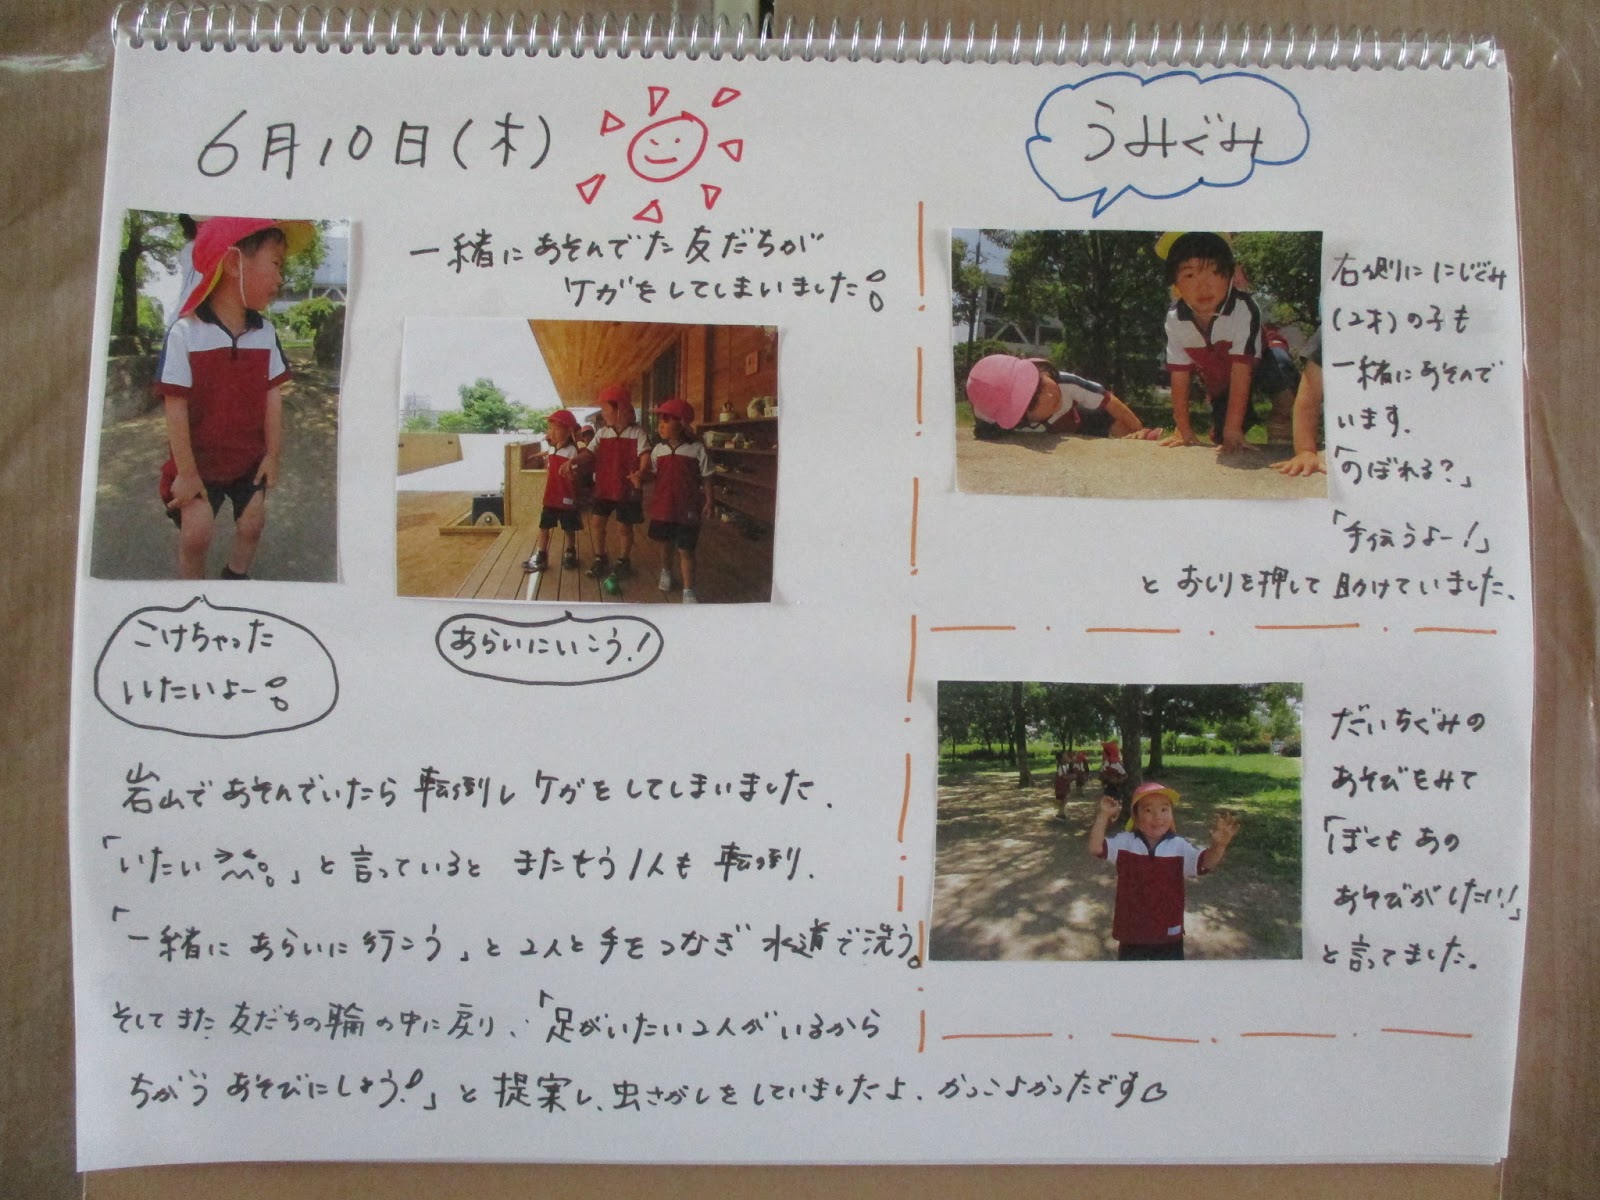 6月10日(木)
うみぐみ
一緒にあそんでた友だちが
ケガをしてしまいました
こけちゃった
いたいよー
あらいにいこう!
岩山であそんでいたら転倒しケガをしてしまいました.
「いたい 」と言っていると またもう1人も転倒.
「一緒にあらいに行こう」と2人と手をつなぎ水道で洗う。
そしてまた友だちの輪の中に戻り、「足がいたい2人がいるから
ちがうあそびにしよう!」と提案し、虫さがしをしていましたよ. かっこよかったです♡
右側ににじぐみ
(2才)の子も
一緒にあそんで
います.
「のぼれる?」
「手伝うよー!」
とおしりを押して助けていました.
だいちぐみの
あそびをみて
「ぼくもあの
あそびがしたい!」
と言ってました。